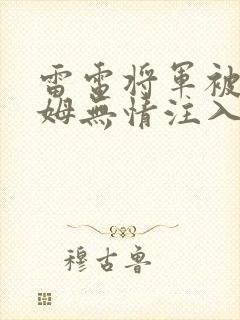 雷電将軍被
姆無情注入
穆古魯